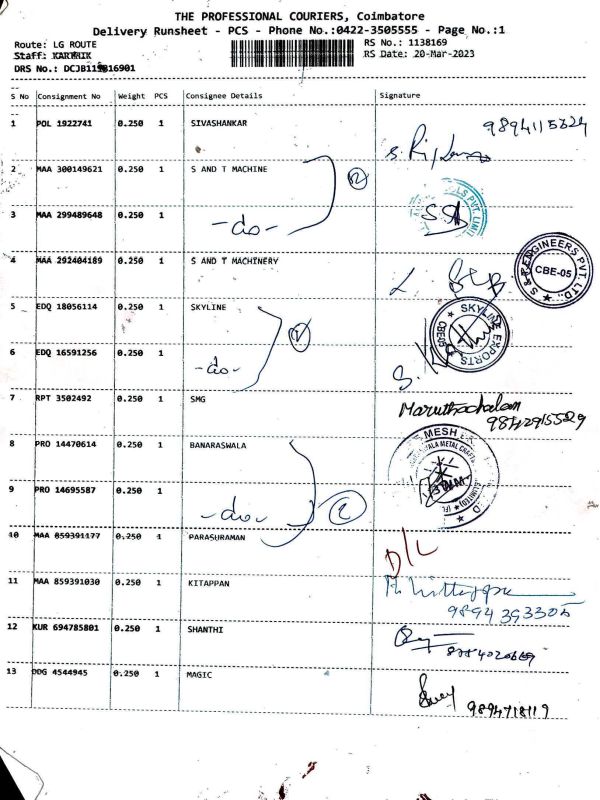 THE PROFESSIONAL COURIERS, Coimbatore
Delivery Runsheet - PCS - Phone No.:0422-3505555 - Page No.:1
Route: LG ROUTE
RS No.: 1138169
Staff: KARTHIK
RS Date: 20-Mar-2023
DRS No.:
S No Consignment No Weight PCS Consignee Details Signature
1 POL 1922741 0.250 1 SIVASHANKAR
2 MAA 300149621 0.250 1 S AND T MACHINE 2
3 MAA 299489648 0.250 1 -do-
4 MAA 292404189 0.250 1 S AND T MACHINERY CBE-05
5 EDQ 18056114 0.250 1 SKYLINE SKYLINE EXPORTS CBE-05
6 EDQ 16591256 0.250 1 -do-
7 RPT 3502492 0.250 1 SMG Maruthachalam
9842915529
8 PRO 14470614 0.250 1 BANARASWALA MESH
9 PRO 14695587 0.250 1 -do- 2
10 MAA 859391177 0.250 1 PARASURAMAN D/L
11 MAA 859391030 0.250 1 KITAPPAN
9894393305
12 KUR 694785801 0.250 1 SHANTHI
13 DDG 4544945 0.250 1 MAGIC
9894718119